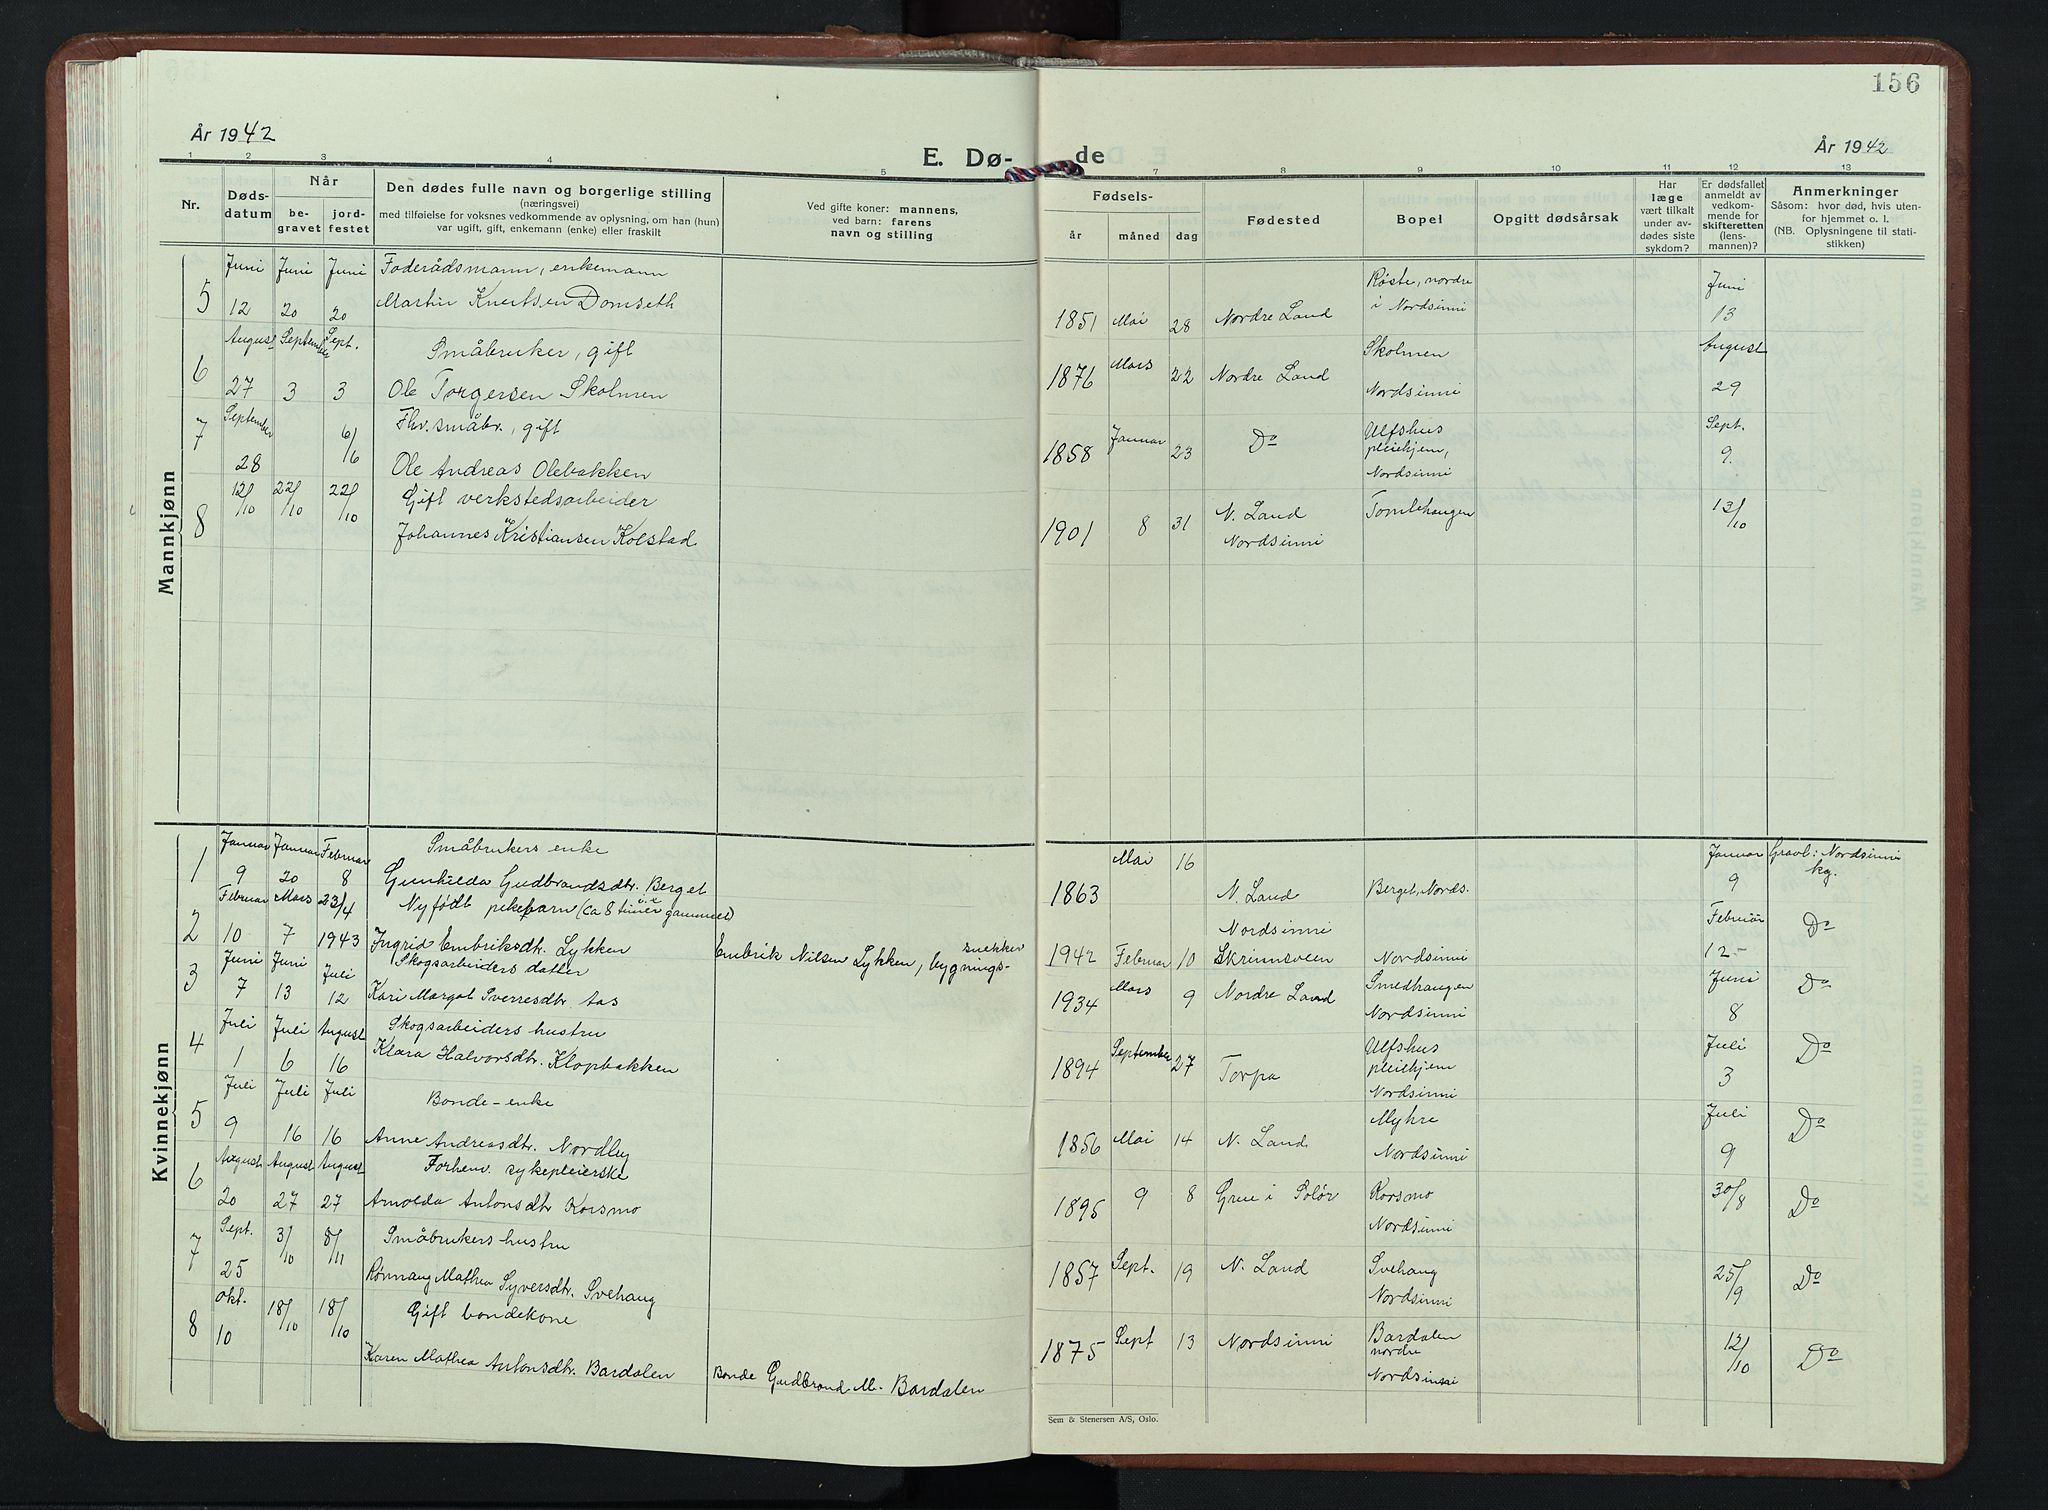 156
År 1942
E. Dø-
de
År 1942
1 2 3 4 5 7 8 9 10 11 12 13
Nr.
Døds-
datum
Når
be-
gravet
jord-
festet
Den dødes fulle navn og borgerlige stilling
(næringsvei)
med tilføielse for voksnes vedkommende av oplysning, om han (hun)
var ugift, gift, enkemann (enke) eller fraskilt
Ved gifte koner: mannens,
ved barn: farens
navn og stilling
Fødsels-
år måned dag
Fødested
Bopel
Opgitt dødsårsak
Har
læge
vært tilkalt
under av-
dødes siste
sykdom?
Er dødsfallet
anmeldt av
vedkom-
mende for
skifteretten
(lens-
mannen)?
Anmerkninger
Såsom: hvor død, hvis uten-
for hjemmet o. l.
(NB. Oplysningene til stati-
stikken)
Mannkjønn
Juni Juni Juni Foderådsmann, enkemann Røste, nordre Juni
5 12 20 20 Martin Knutsen Domseth 1851 Mai 28 Nordre Land i Nordsinni 13
August September Sept. Småbruker, gift Skolmen August
6 27 3 3 Ole Torgersen Skolmen 1876 Mars 22 Nordre Land Nordsinni 29
September Fhv. småbr., gift Ulfshus Sept.
7 6/6 1858 Januar 23 Do pleiehjem, 9.
28 Ole Andreas Olebakken Nordsinni
12/10 22/10 22/10 Gift verkstedsarbeider N. Land Tomlehaugen 13/10
8 Johannes Kristiansen Kolstad 1901 8 31 Nordsinni
Kvinnekjønn
Januar Januar Februar Småbrukers enke Mai 16 Januar Gravl: Nordsinni
1 9 20 8 Gunhilda Gudbrandsdtr. Berget 1863 N. Land Berget, Nords. 9 kg.
Februar Mars 23/4 Nyfødt pikebarn (ca 8 timer gammel) Nordsinni Februar Do
2 10 7 1943 Ingrid Embriksdtr. Lykken Embrik Nilsen Lykken, bygnings- snekker 1942 Februar 10 Skrinnsveen Nordsinni 12
Juni Juni Juli Skogsarbeiders datter Mars Smedhaugen Juni Do
3 7 13 12 Kari Margot Sverresdtr. Aas 1934 9 Nordre Land Nordsinni 8
Juli Juli August Skogsarbeiders hustru September Ulfshus Juli Do
4 1 6 16 Klara Halvorsdtr. Klopbakken 1894 27 Torpa pleiehjem 3
Nordsinni
Juli Juli Juli Bonde-enke Mykre Juli Do
5 9 16 16 Anne Andreasdtr. Nordby 1856 Mai 14 N. Land Nordsinni 9
August August August Forhenv. sykepleierske
6 20 27 27 Arnolda Antonsdtr Korsmo 1895 9 8 Grue i Solør Korsmo 30/8 Do
Nordsinni
Sept. 3/10 8/11 Småbrukers hustru
7 25 Rønnaug Mathea Syversdtr. Svehaug 1857 Sept. 19 N. Land Svehaug 25/9 Do
Nordsinni
Okt. 18/10 18/10 Gift bondekone
8 10 Karen Mathea Antonsdtr. Bardalen Bonde Gudbrand M. Bardalen 1875 Sept 13 Nordsinni Bardalen 12/10 Do
nordre
Nordsinni
Sem & Stenersen A/S, Oslo.